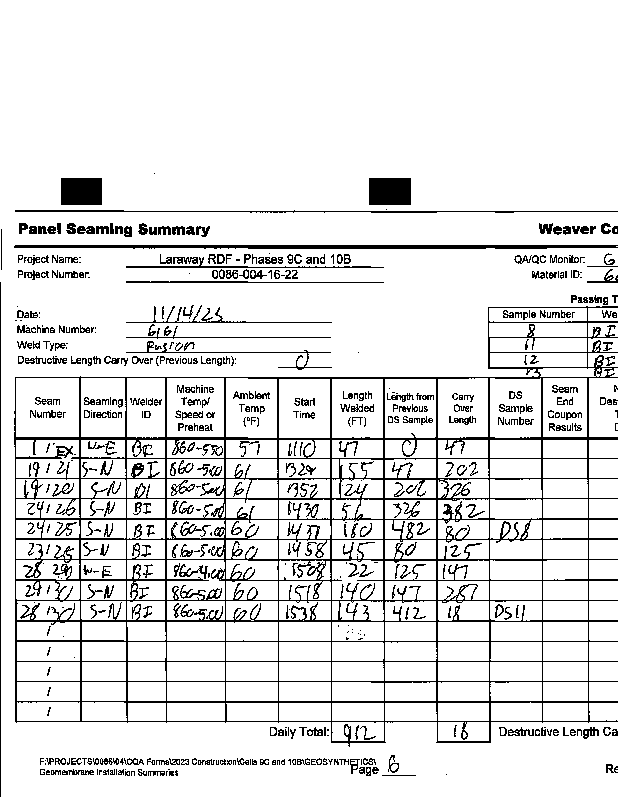 Panel Seaming Summary Weaver Co
Project Name: Laraway RDF - Phases 9C and 10B QA/QC Monitor: G
Project Number: 0086-004-16-22 Material ID: 60
Passing T
Date: 11/14/23 Sample Number We
Machine Number: 6161 8 BI
Weld Type: Fusion 11 BI
Destructive Length Carry Over (Previous Length): 0 12 BI
13 BI
Seam Number Seaming Direction Welder ID Machine Temp/ Speed or Preheat Ambient Temp (°F) Start Time Length Welded (FT) Length from Previous DS Sample Carry Over Length DS Sample Number Seam End Coupon Results
1 / EX W-E BI 860-550 57 1110 47 0 47
19 / 21 S-N BI 860-500 61 1324 155 47 202
19 / 20 S-N BI 860-500 61 1352 124 202 326
24 / 26 S-N BI 860-5.00 61 1430 56 326 382
24 / 25 S-N BI 860-5.00 60 1437 180 482 80 DS8
23 / 25 S-N BI 860-5.00 60 1458 45 80 125
28 290 W-E BI 860-4.00 60 1508 22 125 147
29 / 30 S-N BI 860-5.00 60 1518 140 147 287
28 / 30 S-N BI 860-5.00 60 1538 143 412 18 DS11
/
/
/
/
/
Daily Total: 912 18 Destructive Length Ca
F:\PROJECTS\0086\04\CQA Forms\2023 Construction\Cells 9C and 10B\GEOSYNTHETICS\
Geomembrane Installation Summaries Page 6 Re